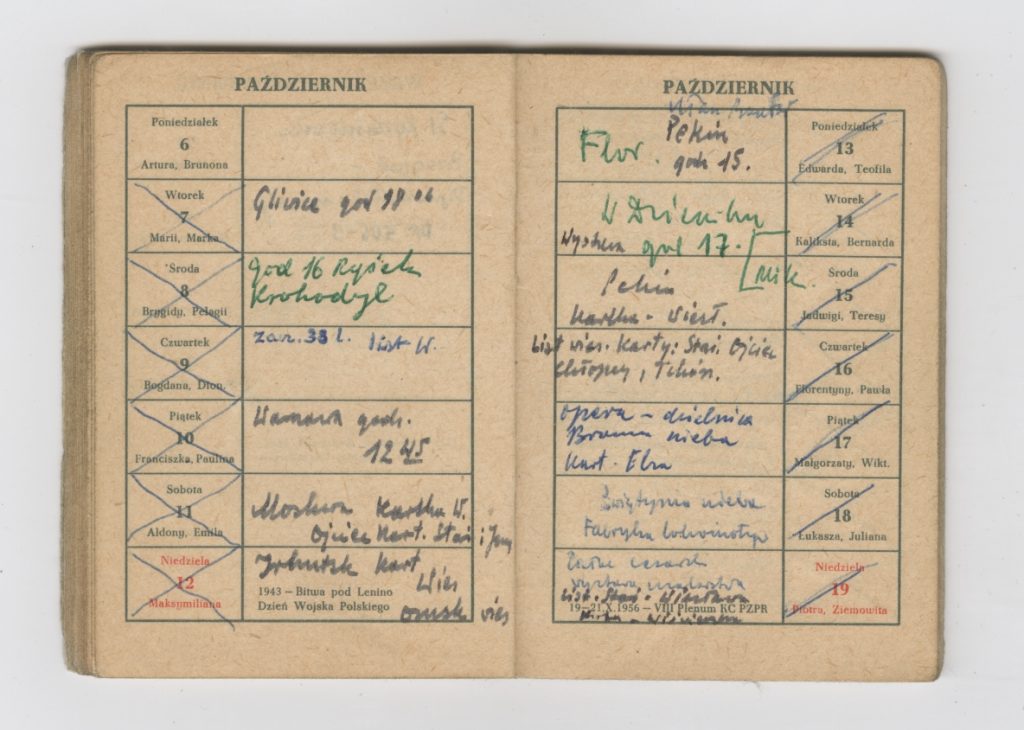 PAŹDZIERNIK
Poniedziałek
6
Artura, Brunona
Wtorek
7
Marii, Marka
Gliwice god
Środa
8
Brygidy, Pelagii
god 16 Rysiek
Krokodyl
Czwartek
9
Bogdana, Dion.
zar. 33 l. list W.
Piątek
10
Franciszka, Paulina
godz.
12 45
Sobota
11
Aldony, Emila
Moskwa Kartka W.
Ojciec Kart. Staś i
Niedziela
12
Maksymiliana
Irkutsk Kart
Wies
1943 – Bitwa pod Lenino
Dzień Wojska Polskiego
omsk wies
PAŹDZIERNIK
Pekin
Flor. god 15.
Poniedziałek
13
Edwarda, Teofila
W Dzienniku
god 17.
Wtorek
14
Kaliksta, Bernarda
Mik.
Pekin
Kartka - Wiesł.
Środa
15
Jadwigi, Teresy
List wies. Karty: Staś. Ojciec
Chłopcy,
Czwartek
16
Florentyny, Pawła
opera – dzielnica
Brama nieba
Kart. Elza
Piątek
17
Małgorzaty, Wikt.
Świątynia nieba
Fabryka
Sobota
18
Łukasza, Juliana
wystawa
List. Staś -
19–21.X.1956 – VIII Plenum KC PZPR
Niedziela
19
Piotra, Ziemowita